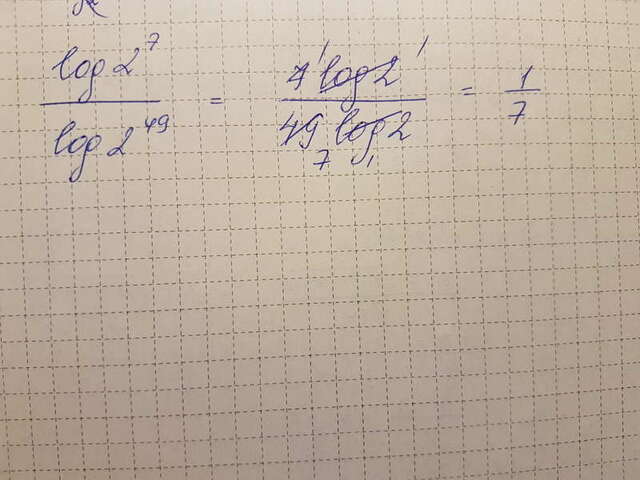 log 2⁷ / log 2⁴⁹ = 7 ¹ log 2 ¹ / 49 ₇ log 2 ₁ = 1 / 7